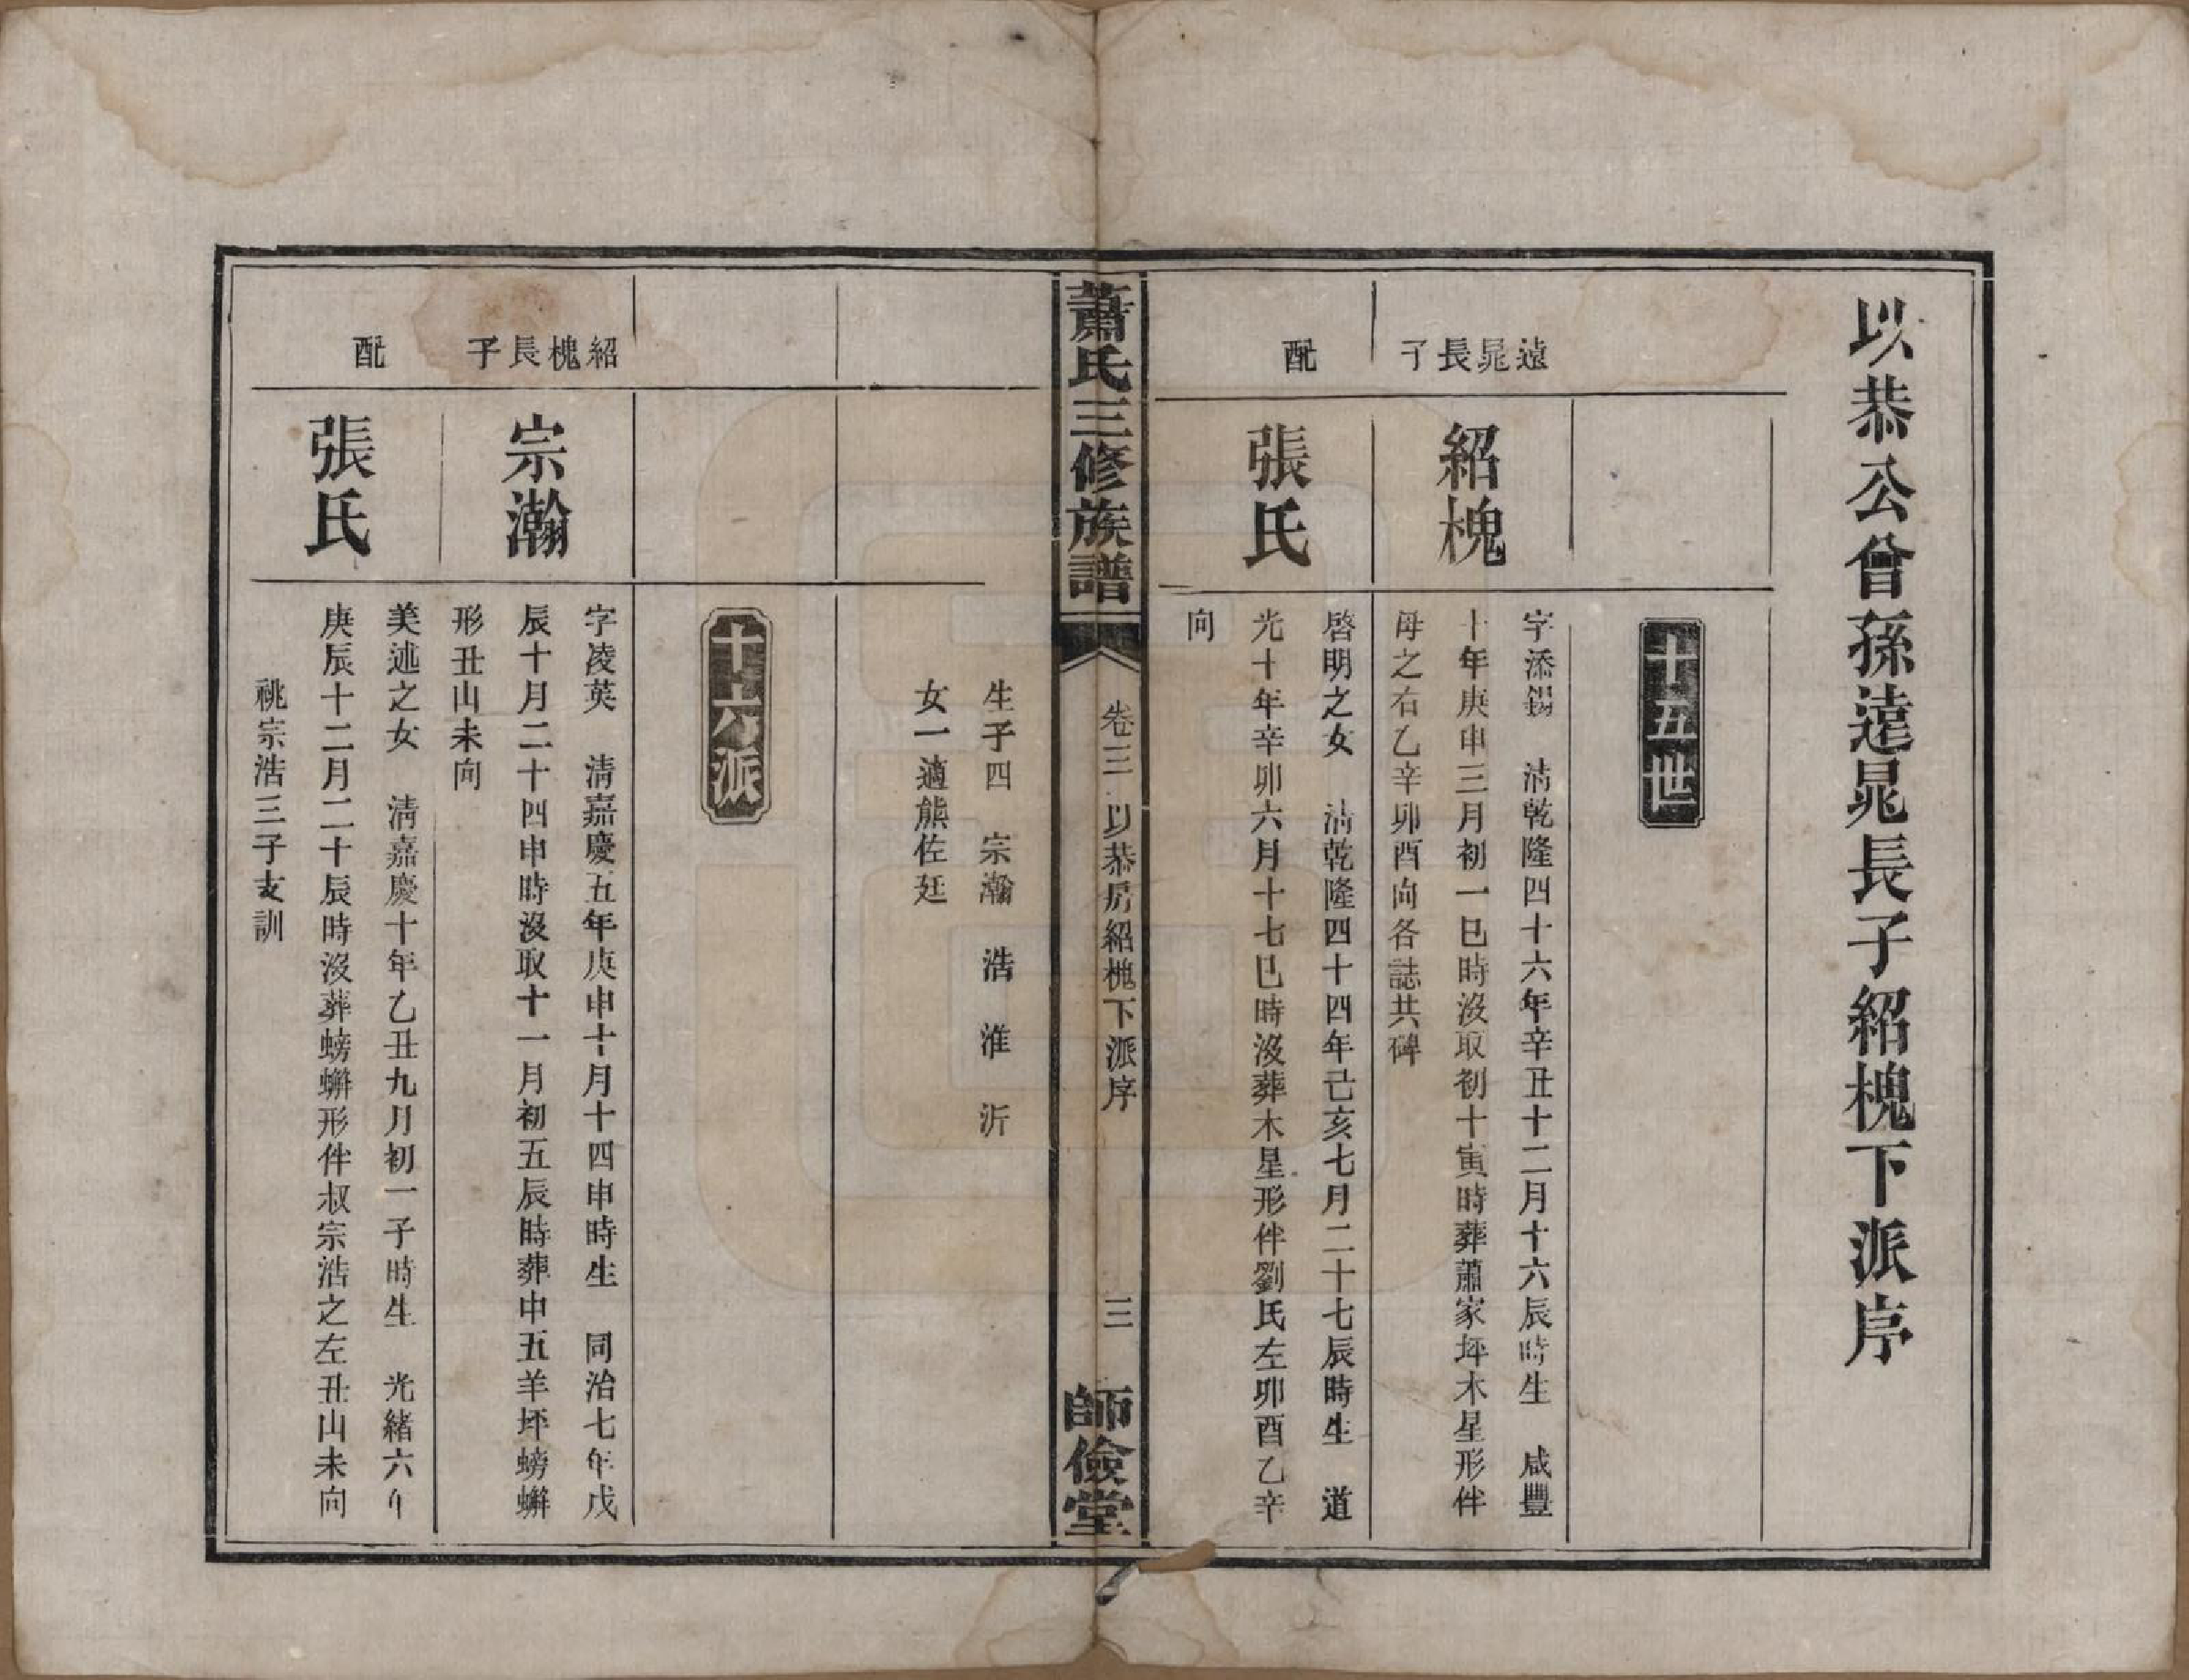 以恭公曾孫遠晁長子紹槐下派序
十五世
遠晁長子
紹槐
字添錫　清乾隆四十六年辛丑十二月十六辰時生　咸豐
十年庚申三月初一巳時沒取初十寅時葬蕭家坪木星形伴
母之右乙辛卯酉向各誌共碑
配
張氏
啓明之女　清乾隆四十四年己亥七月二十七辰時生　道
光十年辛卯六月十七巳時沒葬木星形伴劉氏左卯酉乙辛
向
蕭氏三修族譜
卷三　以恭房紹槐下派序
三
師儉堂
生子四　宗瀚　浩　淮　沂
女一適熊佐廷
十六派
紹槐長子
宗瀚
字凌英　清嘉慶五年庚申十月十四申時生　同治七年戊
辰十月二十四申時沒取十一月初五辰時葬中五羊坪螃蠏
形丑山未向
配
張氏
美述之女　清嘉慶十年乙丑九月初一子時生　光緒六年
庚辰十二月二十辰時沒葬螃蠏形伴叔宗浩之左丑山未向
祧宗浩三子支訓